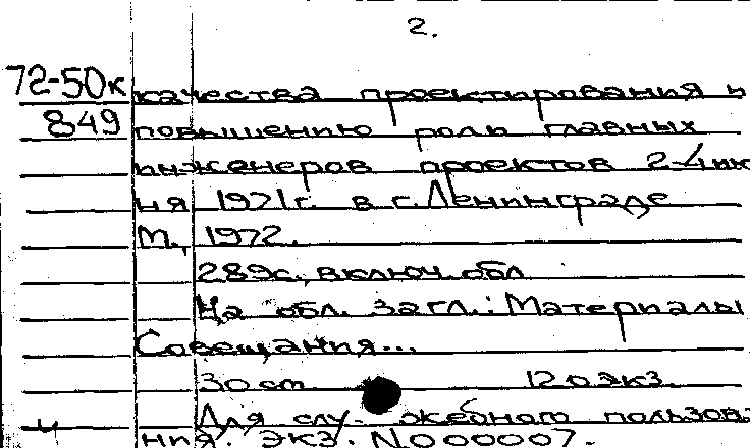 2.
72-50к качества проектирования и
849 повышению роли главных
инженеров проектов 2-4 ию
ня 1971г. в г. Ленинграде
М., 1972.
289с., включ. обл
На обл. загл.: Материалы
Совещания...
30 см. 120 экз.
Для слу- жебного пользова
ния. Экз. N000007.